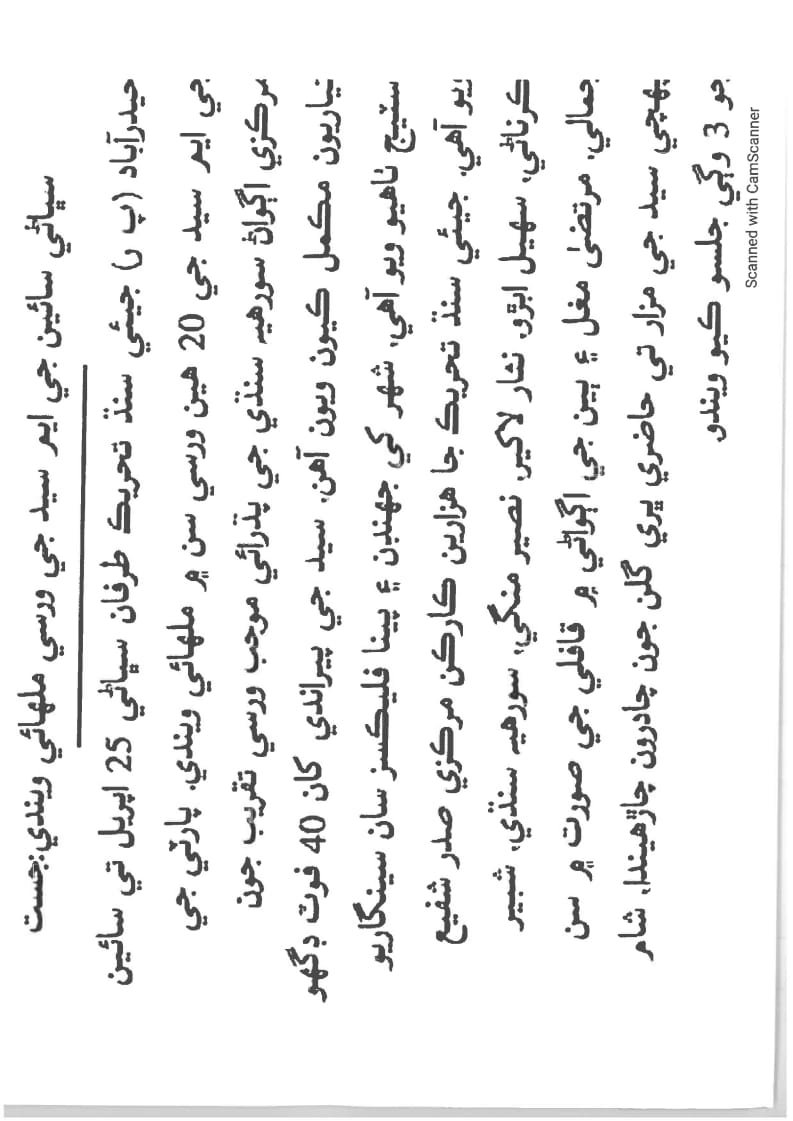 سڀاڻي سائين جي ايم سيد جي ورسي ملهائي ويندي:جست
حيدرآباد (پ ر) جيئي سنڌ تحريڪ طرفان سڀاڻي 25 اپريل تي سائين
جي ايم سيد جي 20 هين ورسي سن ۾ ملهائي ويندي، پارٽي جي
مرڪزي اڳواڻ سورهيه سنڌي جي پڌرائي موجب ورسي تقريب جون
تياريون مڪمل ڪيون ويون آهن، سيد جي پيراندي کان 40 فوٽ ڊگهو
سٽيج ٺاهيو ويو آهي، شهر کي جهنڊن ۽ پينا فليڪسز سان سينگاريو
ويو آهي، جيئي سنڌ تحريڪ جا هزارين ڪارڪن مرڪزي صدر شفيع
ڪرناڻي، سهيل ابڙو، نثار لاکير، نصير منگي، سورهيه سنڌي، شبير
جمالي، مرتضيٰ مغل ۽ ٻين جي اڳواڻي ۾ قافلي جي صورت ۾ سن
پهچي سيد جي مزار تي حاضري ڀري گلن جون چادرون چاڙهيندا، شام
جو 3 وڳي جلسو ڪيو ويندو
Scanned with CamScanner